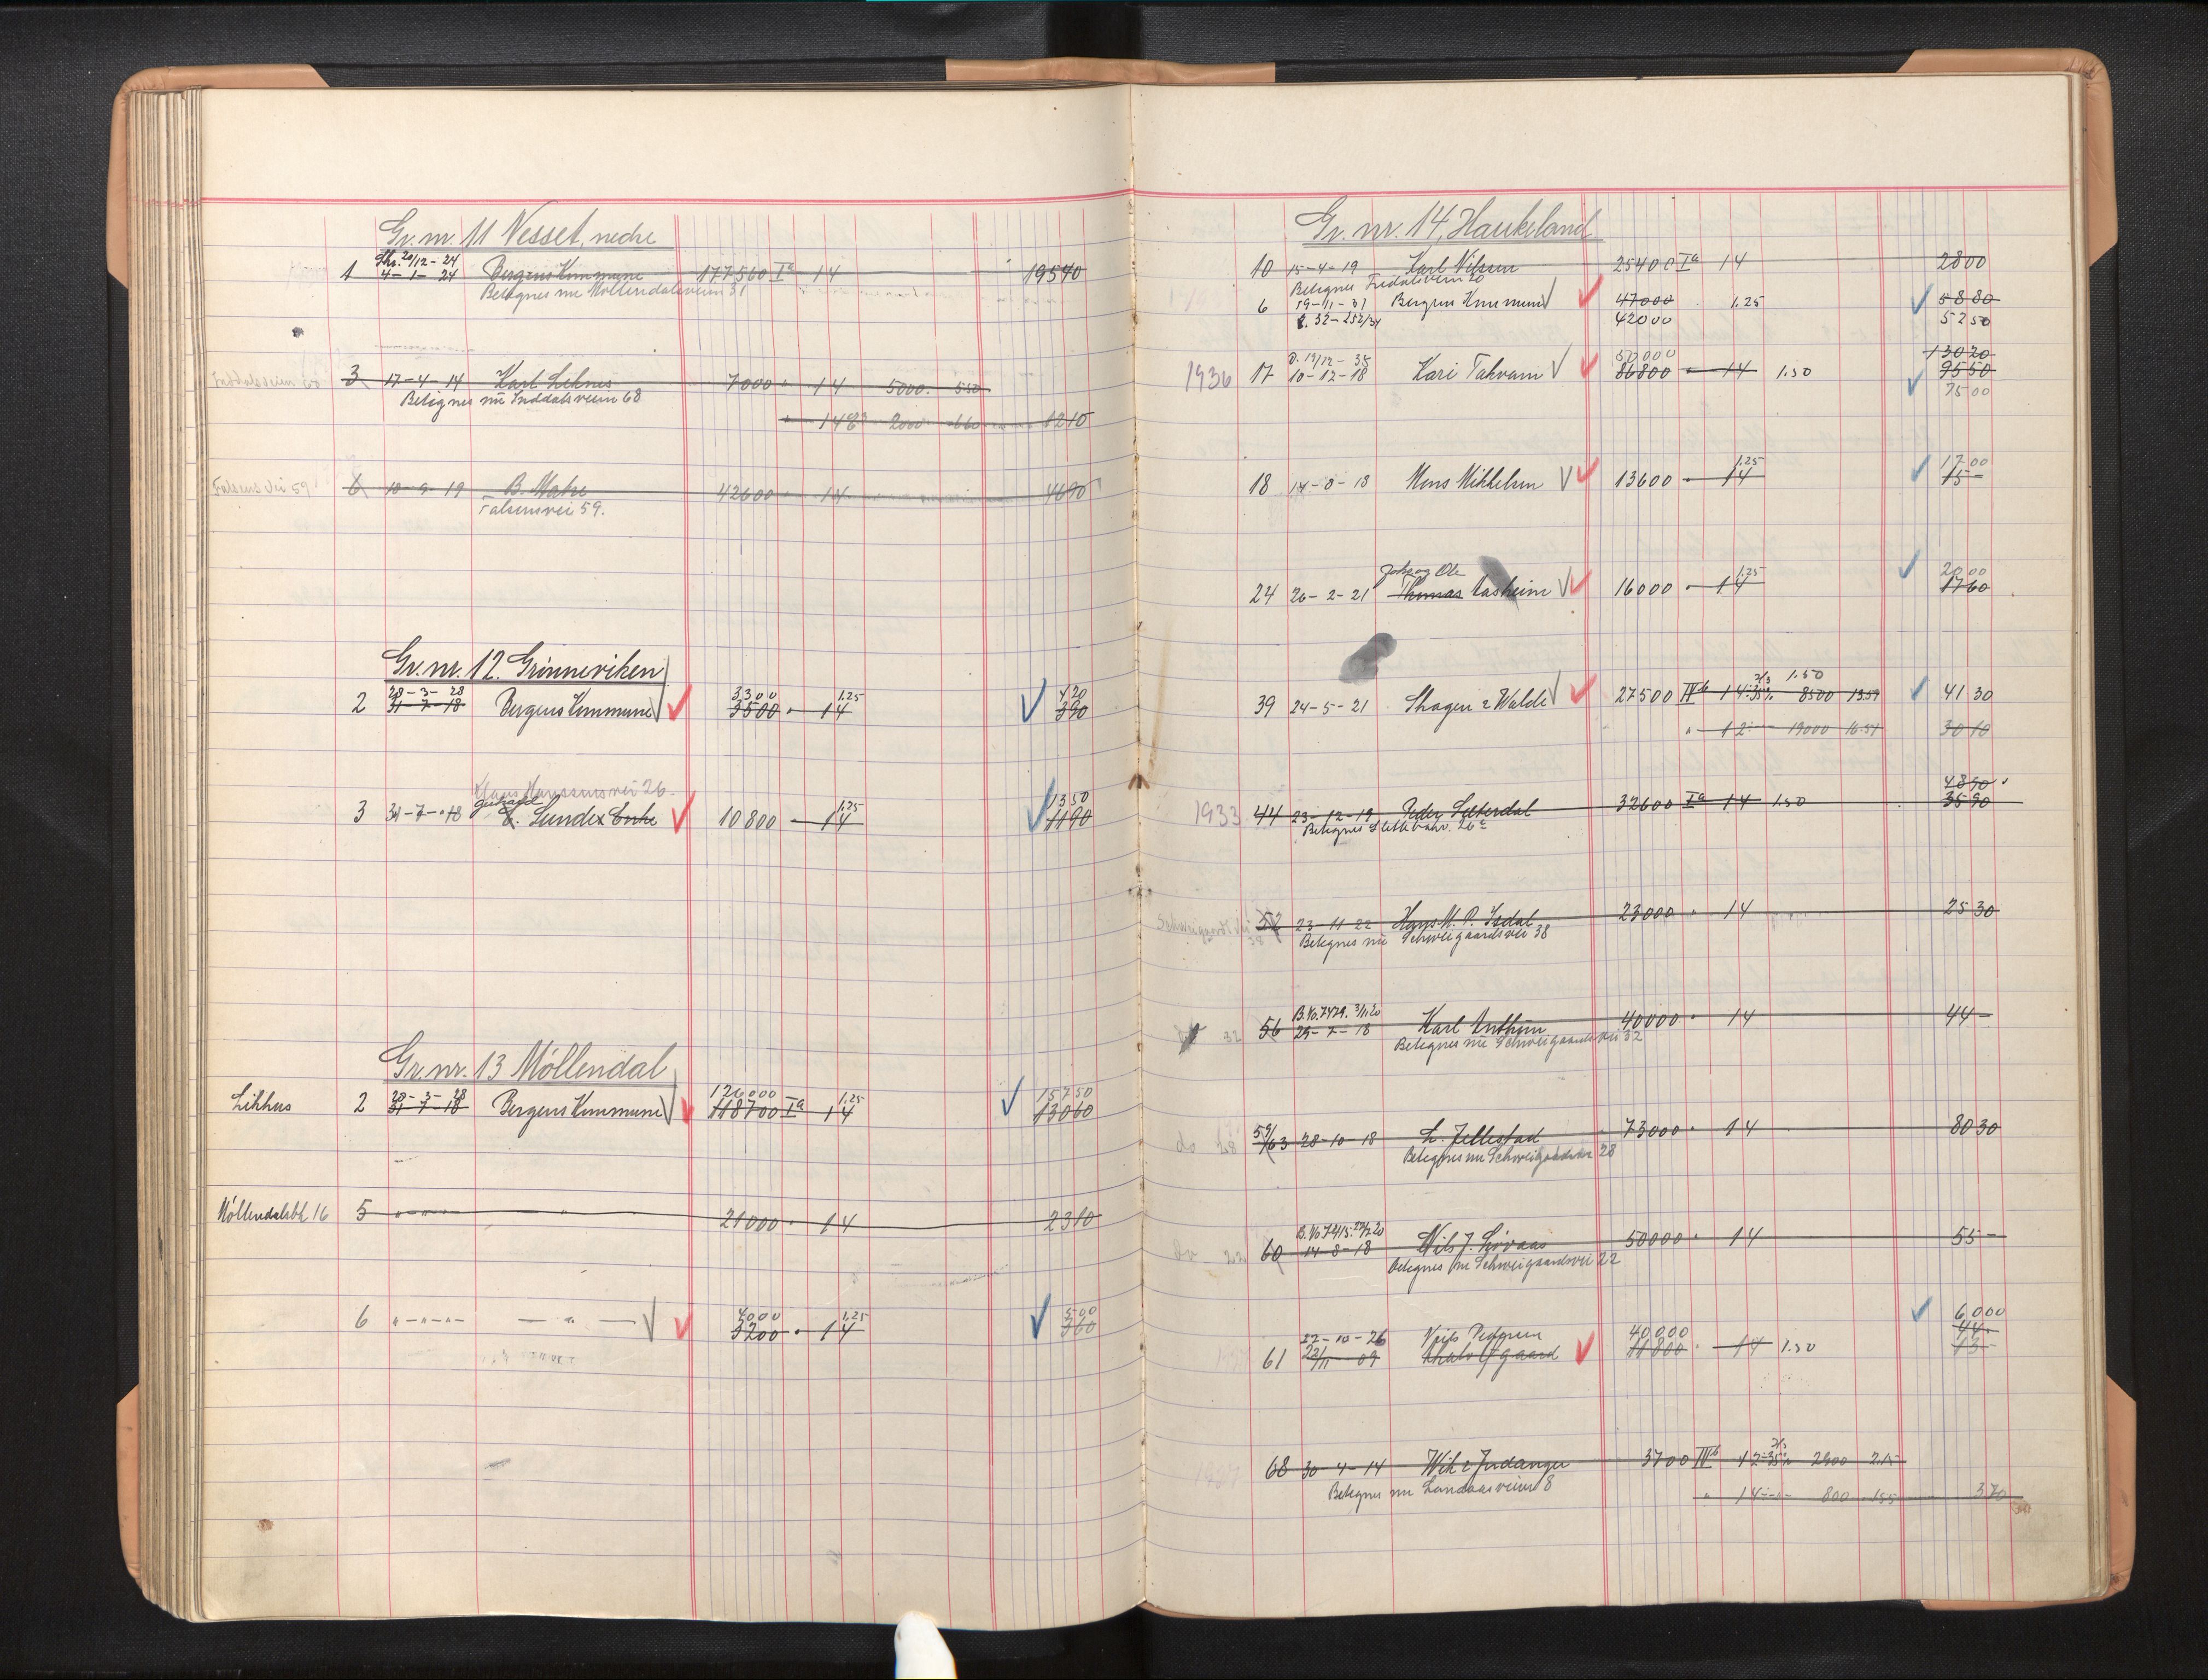 Gr. nr. 11 Nesset, nedre
Skr. 20/12-24
1 4-1-24 Bergens Kommune 177560 Ia 14 19540
Betegnes nu Möllendalsveien 31
3 17-4-14 Karl Leknes 7000 " 14 5000. 550
Betegnes nu Inddalsveien 68
" 14 2000 660 1210
Falsens vei 59 6 10-9-19 B. Mahre 42600 " 14 4690
Falsensvei 59.
Gr. nr. 12. Grönneviken
28-3-28 3300 1.25 420
2 31-7-18 Bergens Kommune 3500 " 14 390
Klaus Hanssensvei 26
Gerhard 1.25 1350
3 31-7-18 Lunde's Enke 10800 14 1190
Gr. nr. 13 Möllendal
28-3-28 126000 1.25 15750
Likhus 2 31-7-18 Bergens Kommune 118700 Ia 14 13060
Möllendalsbk 16 5 " " " " 21000 " 14 2310
4000 1.25 500
6 "-"-"- — " — 3200 " 14 360
Gr. nr. 14, Haukeland
10 15-4-19 Karl Nilsen 25400 Ia 14 2800
Betegnes Fridalsveien 20
6 19-11-31 Bergens Kommune 47000 1.25 5880
32-252/34 42000 5250
13020
19/12-35 50000 9550
1936 17 10-12-18 Kari Takvam 86800 " 14 1.50 7500
1.25 1700
18 14-8-18 Mons Mikkelsen 13600 " 14 15-
Ole 1.25 2000
24 26-2-21 Thomas Aasheim 16000 " 14 1760
2/3 1.50
39 24-5-21 Skagen & Walde 27500 IVb 14-35% 8500 13.59 4130
" 12 19000 16.51 3010
4890
1933 44 23-12-19 Peder Sæterdal 32600 Ia 14 1.50 3590
Betegnes Slettebakv. 26
Schweigaards vei 38 52 23-11-22 Hans M. P. Isdal 23000 " 14 2530
Betegnes nu Schweigaardsvei 38
B. No. 7479. 3/11 20
32 56 25-7-18 Karl Anthun 40000 " 14 44-
Betegnes nu Schweigaardsvei 32
do 28 59/63 28-10-18 L. Jellestad 73000 " 14 8030
Betegnes nu Schweigaardsvei 28
60 14-8-18 Nils J. Lövaas 50000 " 14 55-
Betegnes nu Schweigaardsvei 22
6000
22-10-26 Pedersen 40000 44.
61 23/11-09 11800 " 14 1.50 13-
68 30-4-14 Wik & Indanger 3700 IVb 12-35% 2900 2.15
Betegnes nu Landaasveien 8
" 14 -"- 800 .155 370